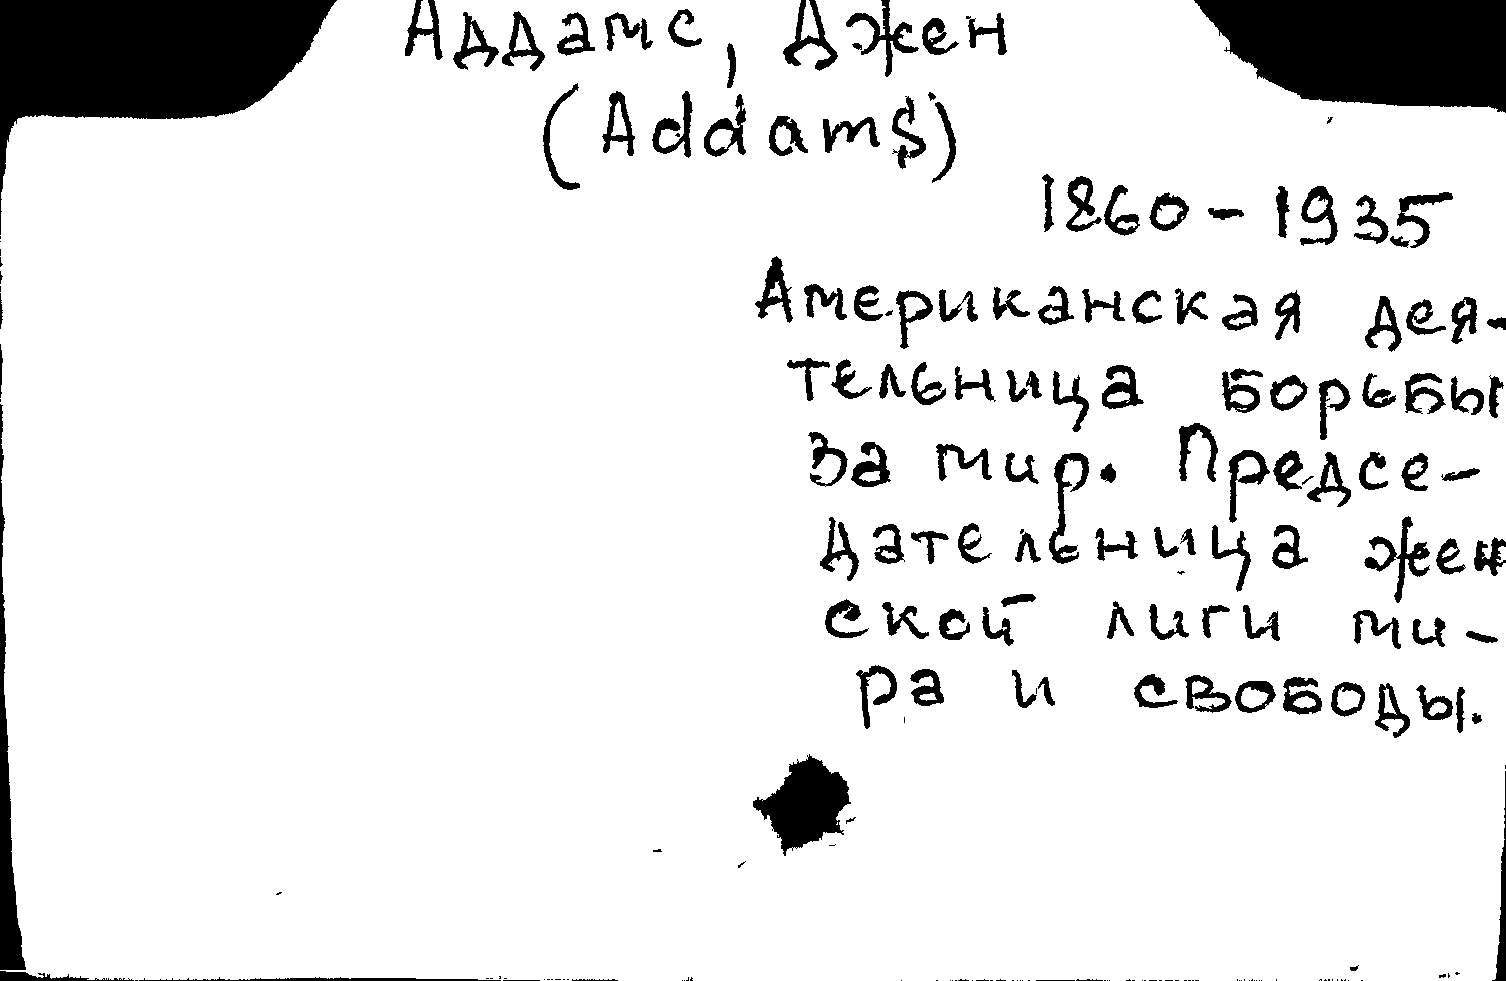 Аддамс, Джен
(Addams)
1860-1935
Американская дея-
тельница борьбы
за мир. Предсе-
дательница жен
ской лиги ми-
ра и свободы.